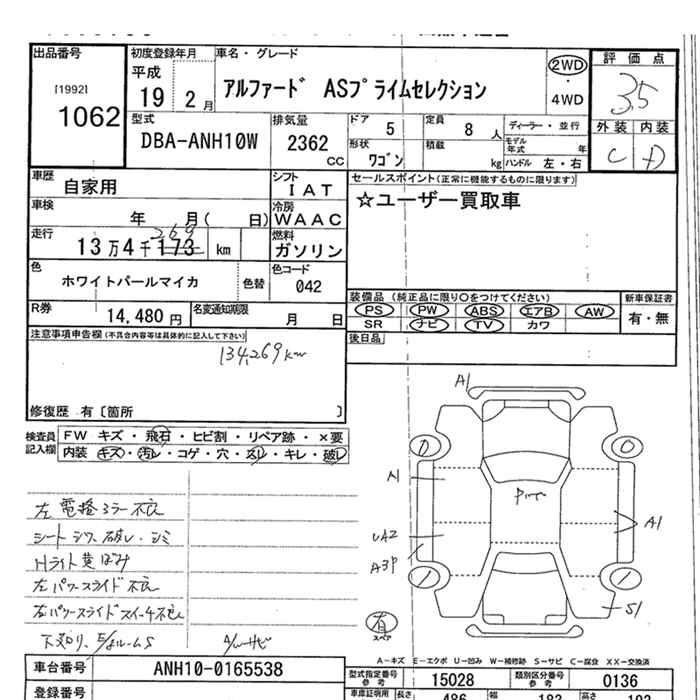 出品番号
[1992]
1062
初度登録年月
平成
19 2月
車名・グレード
アルファード ASプライムセレクション
2WD
・
4WD
評価点
3.5
外装 内装
C D
型式
DBA-ANH10W
排気量
2362
CC
ドア 5
定員 8人
形状 ワゴン
積載 kg
ディーラー・並行
モデル年式 年
ハンドル 左・右
車歴
自家用
シフト
IAT
車検
年 月( 日)
冷房
WAAC
走行
13万4千173 km
269
燃料
ガソリン
色
ホワイトパールマイカ
色替
色コード
042
R券
14,480円
名変通知期限
月 日
セールスポイント(正常に機能するものに限ります)
☆ユーザー買取車
装備品(純正品に限り○をつけてください)
PS PW ABS エアB AW
SR ナビ TV カワ
新車保証書
有・無
後日品
注意事項申告欄(不具合内容等は具体的に記入して下さい)
134,269km
修復歴 有〔箇所 〕
検査員記入欄
FW キズ・飛石・ヒビ割・リペア跡・×要
内装 キズ・汚レ・コゲ・穴・スレ・キレ・破レ
左電格ミラー不良
シート シワ 破レ・シミ
Hライト黄ばみ
左パワースライド不良
右パワースライドスイッチ不良
A/Wサビ
A1
A1
UA2
A3P
S1
有
スペア
A-キズ E-エクボ U-凹み W-補修跡 S-サビ C-腐食 XX-交換済
車台番号
ANH10-0165538
型式指定番号
参考
15028
類別区分番号
参考
0136
登録番号
車庫証明用
長さ
486
幅
183
高さ